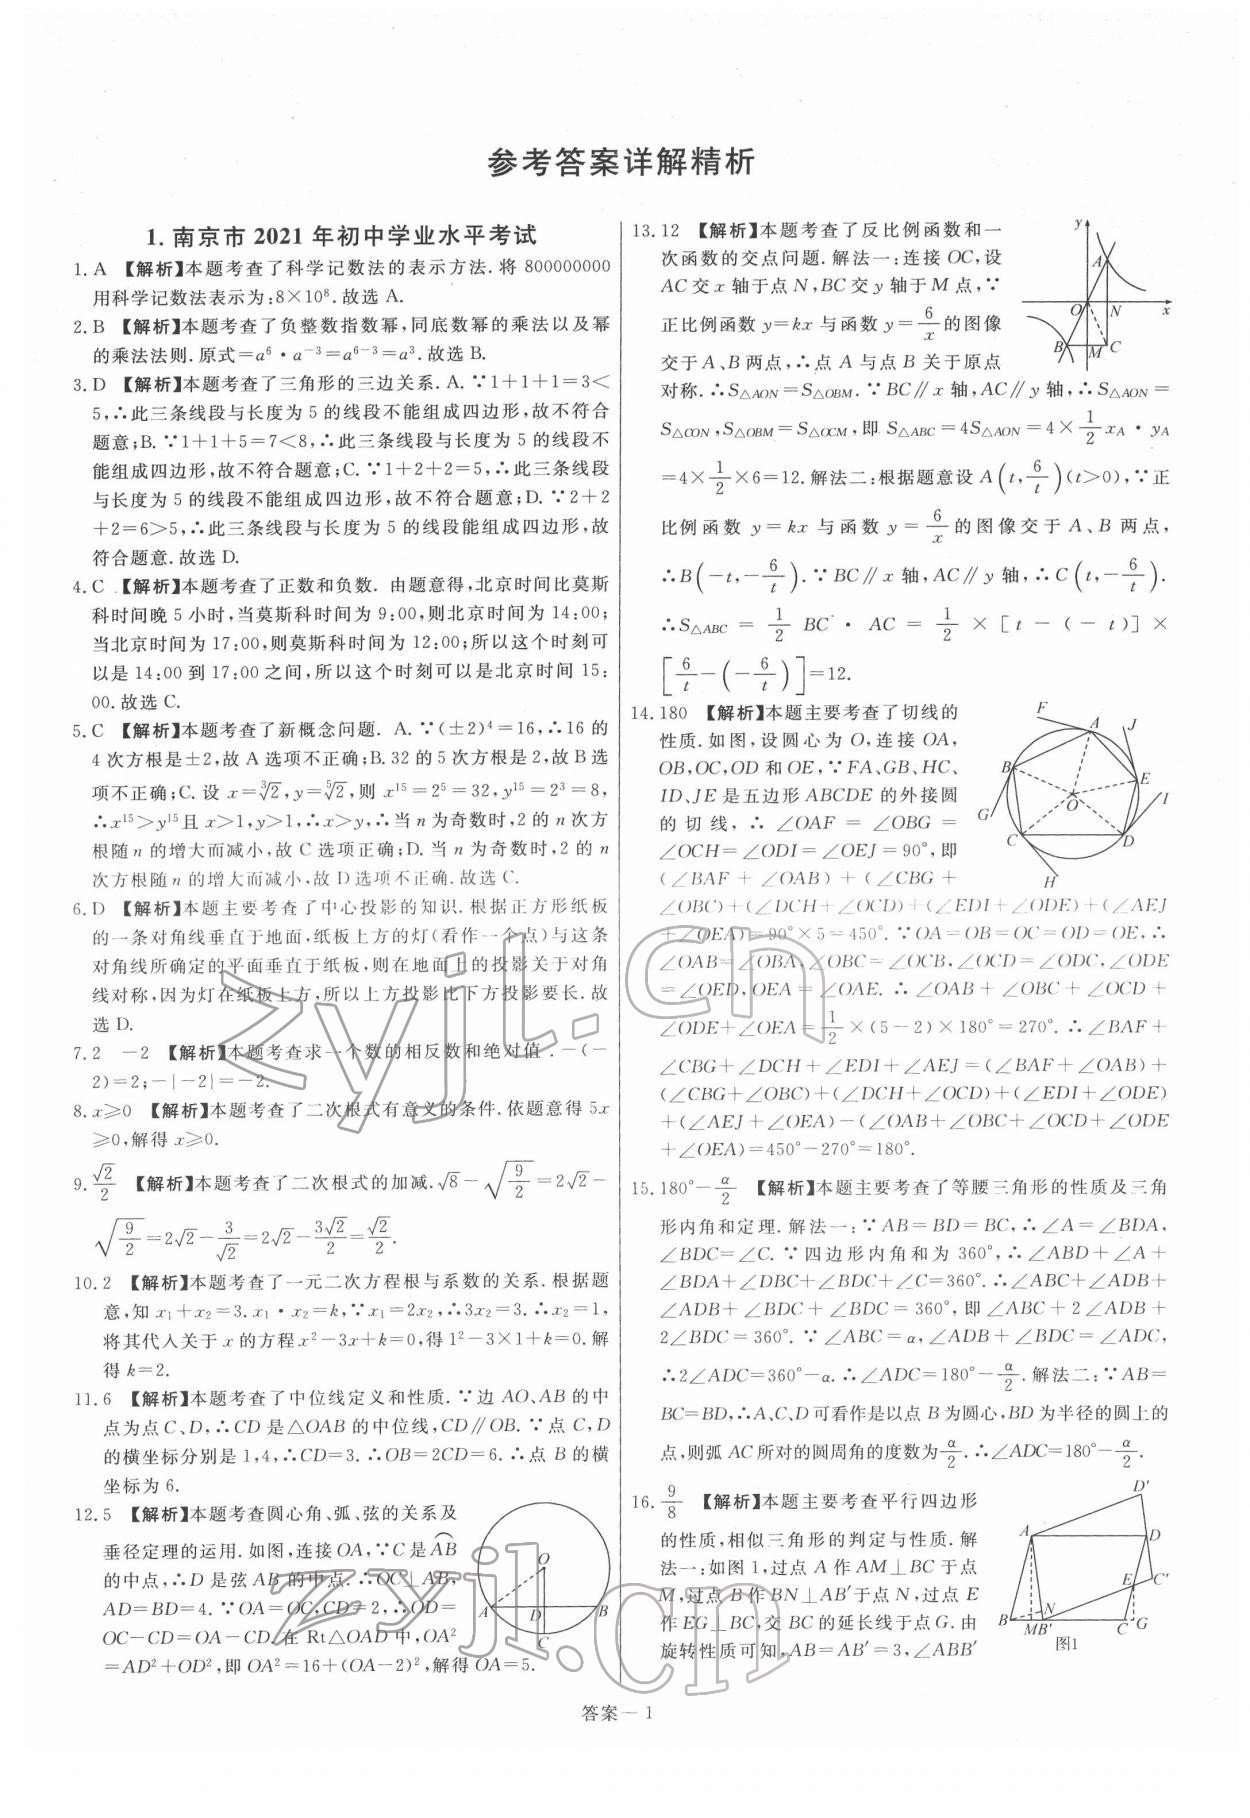 参考答案详解精析
1. 南京市 2021 年初中学业水平考试
1. A 【解析】本题考查了科学记数法的表示方法.将 800000000
用科学记数法表示为:8×10⁸.故选 A.
2. B 【解析】本题考查了负整数指数幂,同底数幂的乘法以及幂
的乘法法则.原式=a⁶·a⁻³=a⁶⁻³=a³.故选 B.
3. D 【解析】本题考查了三角形的三边关系. A. ∵1+1+1=3<
5,∴此三条线段与长度为 5 的线段不能组成四边形,故不符合
题意;B. ∵1+1+5=7<8,∴此三条线段与长度为 5 的线段不
能组成四边形,故不符合题意;C. ∵1+2+2=5,∴此三条线段
与长度为 5 的线段不能组成四边形,故不符合题意;D. ∵2+2
+2=6>5,∴此三条线段与长度为 5 的线段能组成四边形,故
符合题意.故选 D.
4. C 【解析】本题考查了正数和负数. 由题意得,北京时间比莫斯
科时间晚 5 小时,当莫斯科时间为 9:00,则北京时间为 14:00;
当北京时间为 17:00,则莫斯科时间为 12:00;所以这个时刻可
以是 14:00 到 17:00 之间,所以这个时刻可以是北京时间 15:
00.故选 C.
5. C 【解析】本题考查了新概念问题. A. ∵(±2)⁴=16,∴16 的
4 次方根是±2,故 A 选项不正确;B. 32 的 5 次方根是 2,故 B 选
项不正确;C. 设 x=∛2,y=⁵√2,则 x¹⁵=2⁵=32,y¹⁵=2³=8,
∴x¹⁵>y¹⁵且 x>1,y>1,∴x>y,∴当 n 为奇数时,2 的 n 次方
根随 n 的增大而减小,故 C 选项正确;D. 当 n 为奇数时,2 的 n
次方根随 n 的增大而减小,故 D 选项不正确.故选 C.
6. D 【解析】本题主要考查了中心投影的知识.根据正方形纸板
的一条对角线垂直于地面,纸板上方的灯(看作一个点)与这条
对角线所确定的平面垂直于纸板,则在地面上的投影关于对角
线对称,因为灯在纸板上方,所以上方投影比下方投影要长.故
选 D.
7. 2 −2 【解析】本题考查求一个数的相反数和绝对值.−(−
2)=2;−|−2|=−2.
8. x≥0 【解析】本题考查了二次根式有意义的条件.依题意得 5x
≥0,解得 x≥0.
9. √2/2 【解析】本题考查了二次根式的加减.√8−√(9/2)=2√2−
√(9/2)=2√2−3/√2=2√2−3√2/2=√2/2.
10. 2 【解析】本题考查了一元二次方程根与系数的关系.根据题
意,知 x₁+x₂=3.x₁·x₂=k,∵x₁=2x₂,∴3x₂=3.∴x₂=1,
将其代入关于 x 的方程 x²−3x+k=0,得 1²−3×1+k=0.解
得 k=2.
11. 6 【解析】本题考查了中位线定义和性质.∵边 AO、AB 的中
点为点 C、D,∴CD 是△OAB 的中位线,CD∥OB.∵点 C、D
的横坐标分别是 1,4,∴CD=3.∴OB=2CD=6.∴点 B 的横
坐标为 6.
12. 5 【解析】本题考查圆心角、弧、弦的关系及
垂径定理的运用.如图,连接 OA,∵C 是⌒AB
的中点,∴D 是弦 AB 的中点.∴OC⊥AB,
AD=BD=4.∵OA=OC,CD=2,∴OD=
OC−CD=OA−CD.在 Rt△OAD 中,OA²
=AD²+OD²,即 OA²=16+(OA−2)²,解得 OA=5.
O
A D B
C
13. 12 【解析】本题考查了反比例函数和一
次函数的交点问题.解法一:连接 OC,设
AC 交 x 轴于点 N,BC 交 y 轴于 M 点,∵
正比例函数 y=kx 与函数 y=6/x 的图像
交于 A、B 两点,∴点 A 与点 B 关于原点
对称.∴S△AON=S△OBM.∵BC∥x 轴,AC∥y 轴,∴S△AON=
S△CON,S△OBM=S△OCM,即 S△ABC=4S△AON=4×1/2 xA·yA
=4×1/2×6=12.解法二:根据题意设 A(t,6/t)(t>0),∵正
比例函数 y=kx 与函数 y=6/x 的图像交于 A、B 两点,
∴B(−t,−6/t).∵BC∥x 轴,AC∥y 轴,∴C(t,−6/t).
∴S△ABC=1/2 BC·AC=1/2×[t−(−t)]×
[6/t−(−6/t)]=12.
y
A
O N x
B M C
14. 180 【解析】本题主要考查了切线的
性质.如图,设圆心为 O,连接 OA,
OB,OC,OD 和 OE,∵FA、GB、HC、
ID、JE 是五边形 ABCDE 的外接圆
的切线,∴∠OAF=∠OBG=
∠OCH=∠ODI=∠OEJ=90°,即
(∠BAF+∠OAB)+(∠CBG+
∠OBC)+(∠DCH+∠OCD)+(∠EDI+∠ODE)+(∠AEJ
+∠OEA)=90°×5=450°.∵OA=OB=OC=OD=OE,∴
∠OAB=∠OBA,∠OBC=∠OCB,∠OCD=∠ODC,∠ODE
=∠OED,OEA=∠OAE.∴∠OAB+∠OBC+∠OCD+
∠ODE+∠OEA=1/2×(5−2)×180°=270°.∴∠BAF+
∠CBG+∠DCH+∠EDI+∠AEJ=(∠BAF+∠OAB)+
(∠CBG+∠OBC)+(∠DCH+∠OCD)+(∠EDI+∠ODE)
+(∠AEJ+∠OEA)−(∠OAB+∠OBC+∠OCD+∠ODE
+∠OEA)=450°−270°=180°.
F A J
B E
O I
G
C D
H
15. 180°−α/2 【解析】本题主要考查了等腰三角形的性质及三角
形内角和定理.解法一:∵AB=BD=BC,∴∠A=∠BDA,
∠BDC=∠C.∵四边形内角和为 360°,∴∠ABD+∠A+
∠BDA+∠DBC+∠BDC+∠C=360°.∴∠ABC+∠ADB+
∠ADB+∠BDC+∠BDC=360°,即∠ABC+2∠ADB+
2∠BDC=360°.∵∠ABC=α,∠ADB+∠BDC=∠ADC,
∴2∠ADC=360°−α.∴∠ADC=180°−α/2.解法二:∵AB=
BC=BD,∴A、C、D 可看作是以点 B 为圆心,BD 为半径的圆上的
点,则弧 AC 所对的圆周角的度数为α/2.∴∠ADC=180°−α/2.
16. 9/8 【解析】本题主要考查平行四边形
的性质,相似三角形的判定与性质.解
法一:如图 1,过点 A 作 AM⊥BC 于点
M,过点 B 作 BN⊥AB′于点 N,过点 E
作 EG⊥BC,交 BC 的延长线于点 G.由
旋转性质可知,AB=AB′=3,∠ABB′
D′
A D
E C′
N
B MB′ C G
图1
答案 — 1
zyjl.cn
zyjl.cn